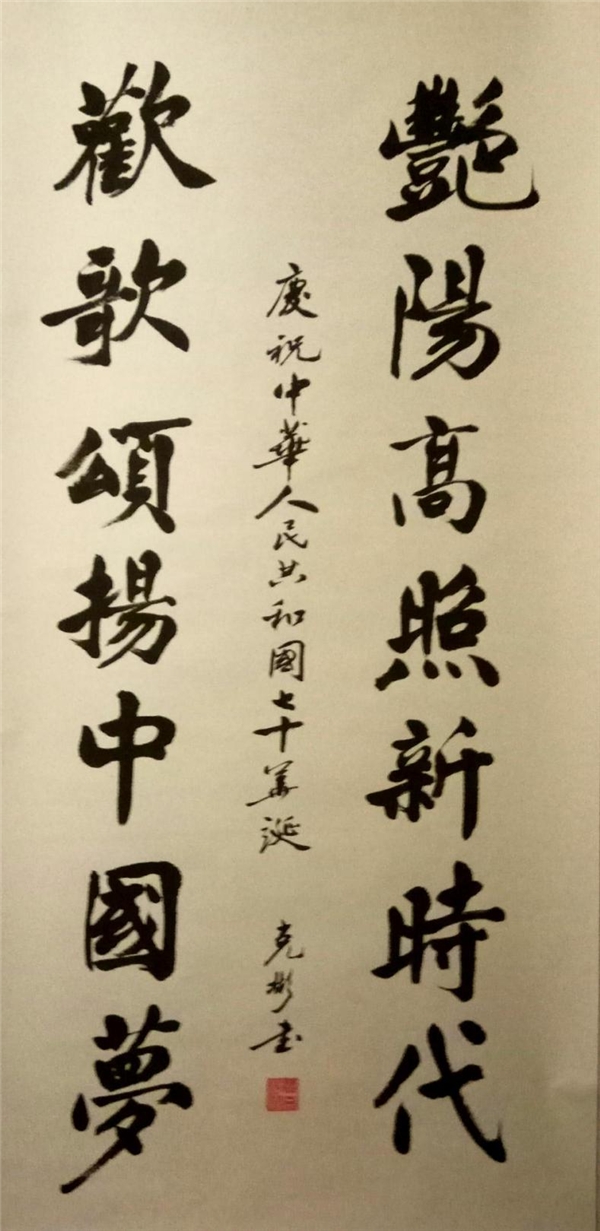 艷陽高照新時代
慶祝中華人民共和國七十華誕
克彬书
歡歌頌揚中國夢